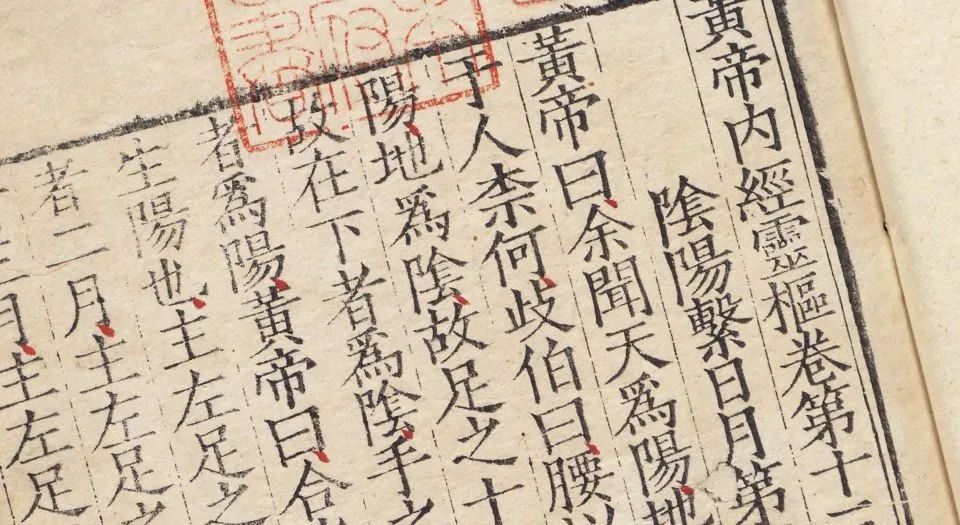 黃帝内經靈樞卷第十
隂陽繫日月第
黃帝曰余聞天爲陽地
于人柰何歧伯曰腰
陽地爲隂故足之十
故在下者爲隂手之
者爲陽黃帝曰合
生陽也主左足之
者二月主左足
月主左足